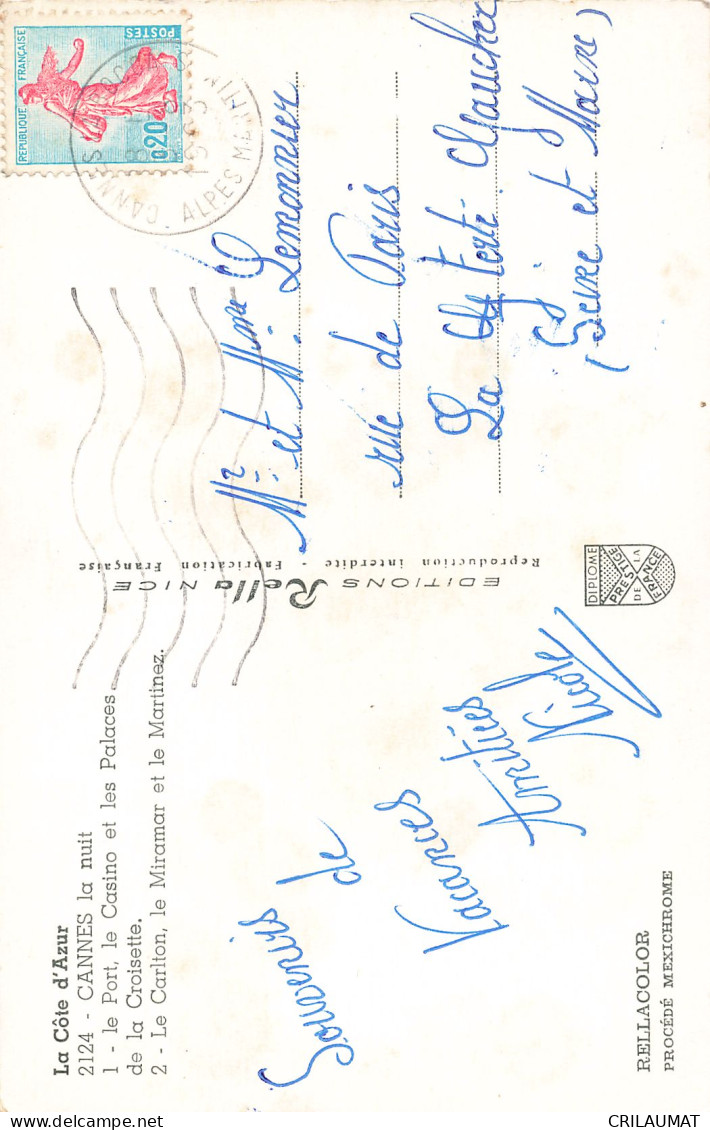 La Côte d'Azur
2124 - CANNES la nuit
1 - le Port, le Casino et les Palaces
de la Croisette.
2 - Le Carlton, le Miramar et le Martinez.
Souvenirs
de
Vacances
Amitiés
Nicole
RELLACOLOR
PROCÉDÉ MEXICHROME
EDITIONS Rella NICE
Reproduction interdite - Fabrication Française
DIPLOME
PRESTIGE
DE LA
FRANCE
REPUBLIQUE FRANÇAISE
POSTES
0,20
CANNES
ALPES MARTIMES
Mr et Mme Lemonnier
rue de Paris
La Ferté Gaucher
(Seine et Marne)
CRILAUMAT